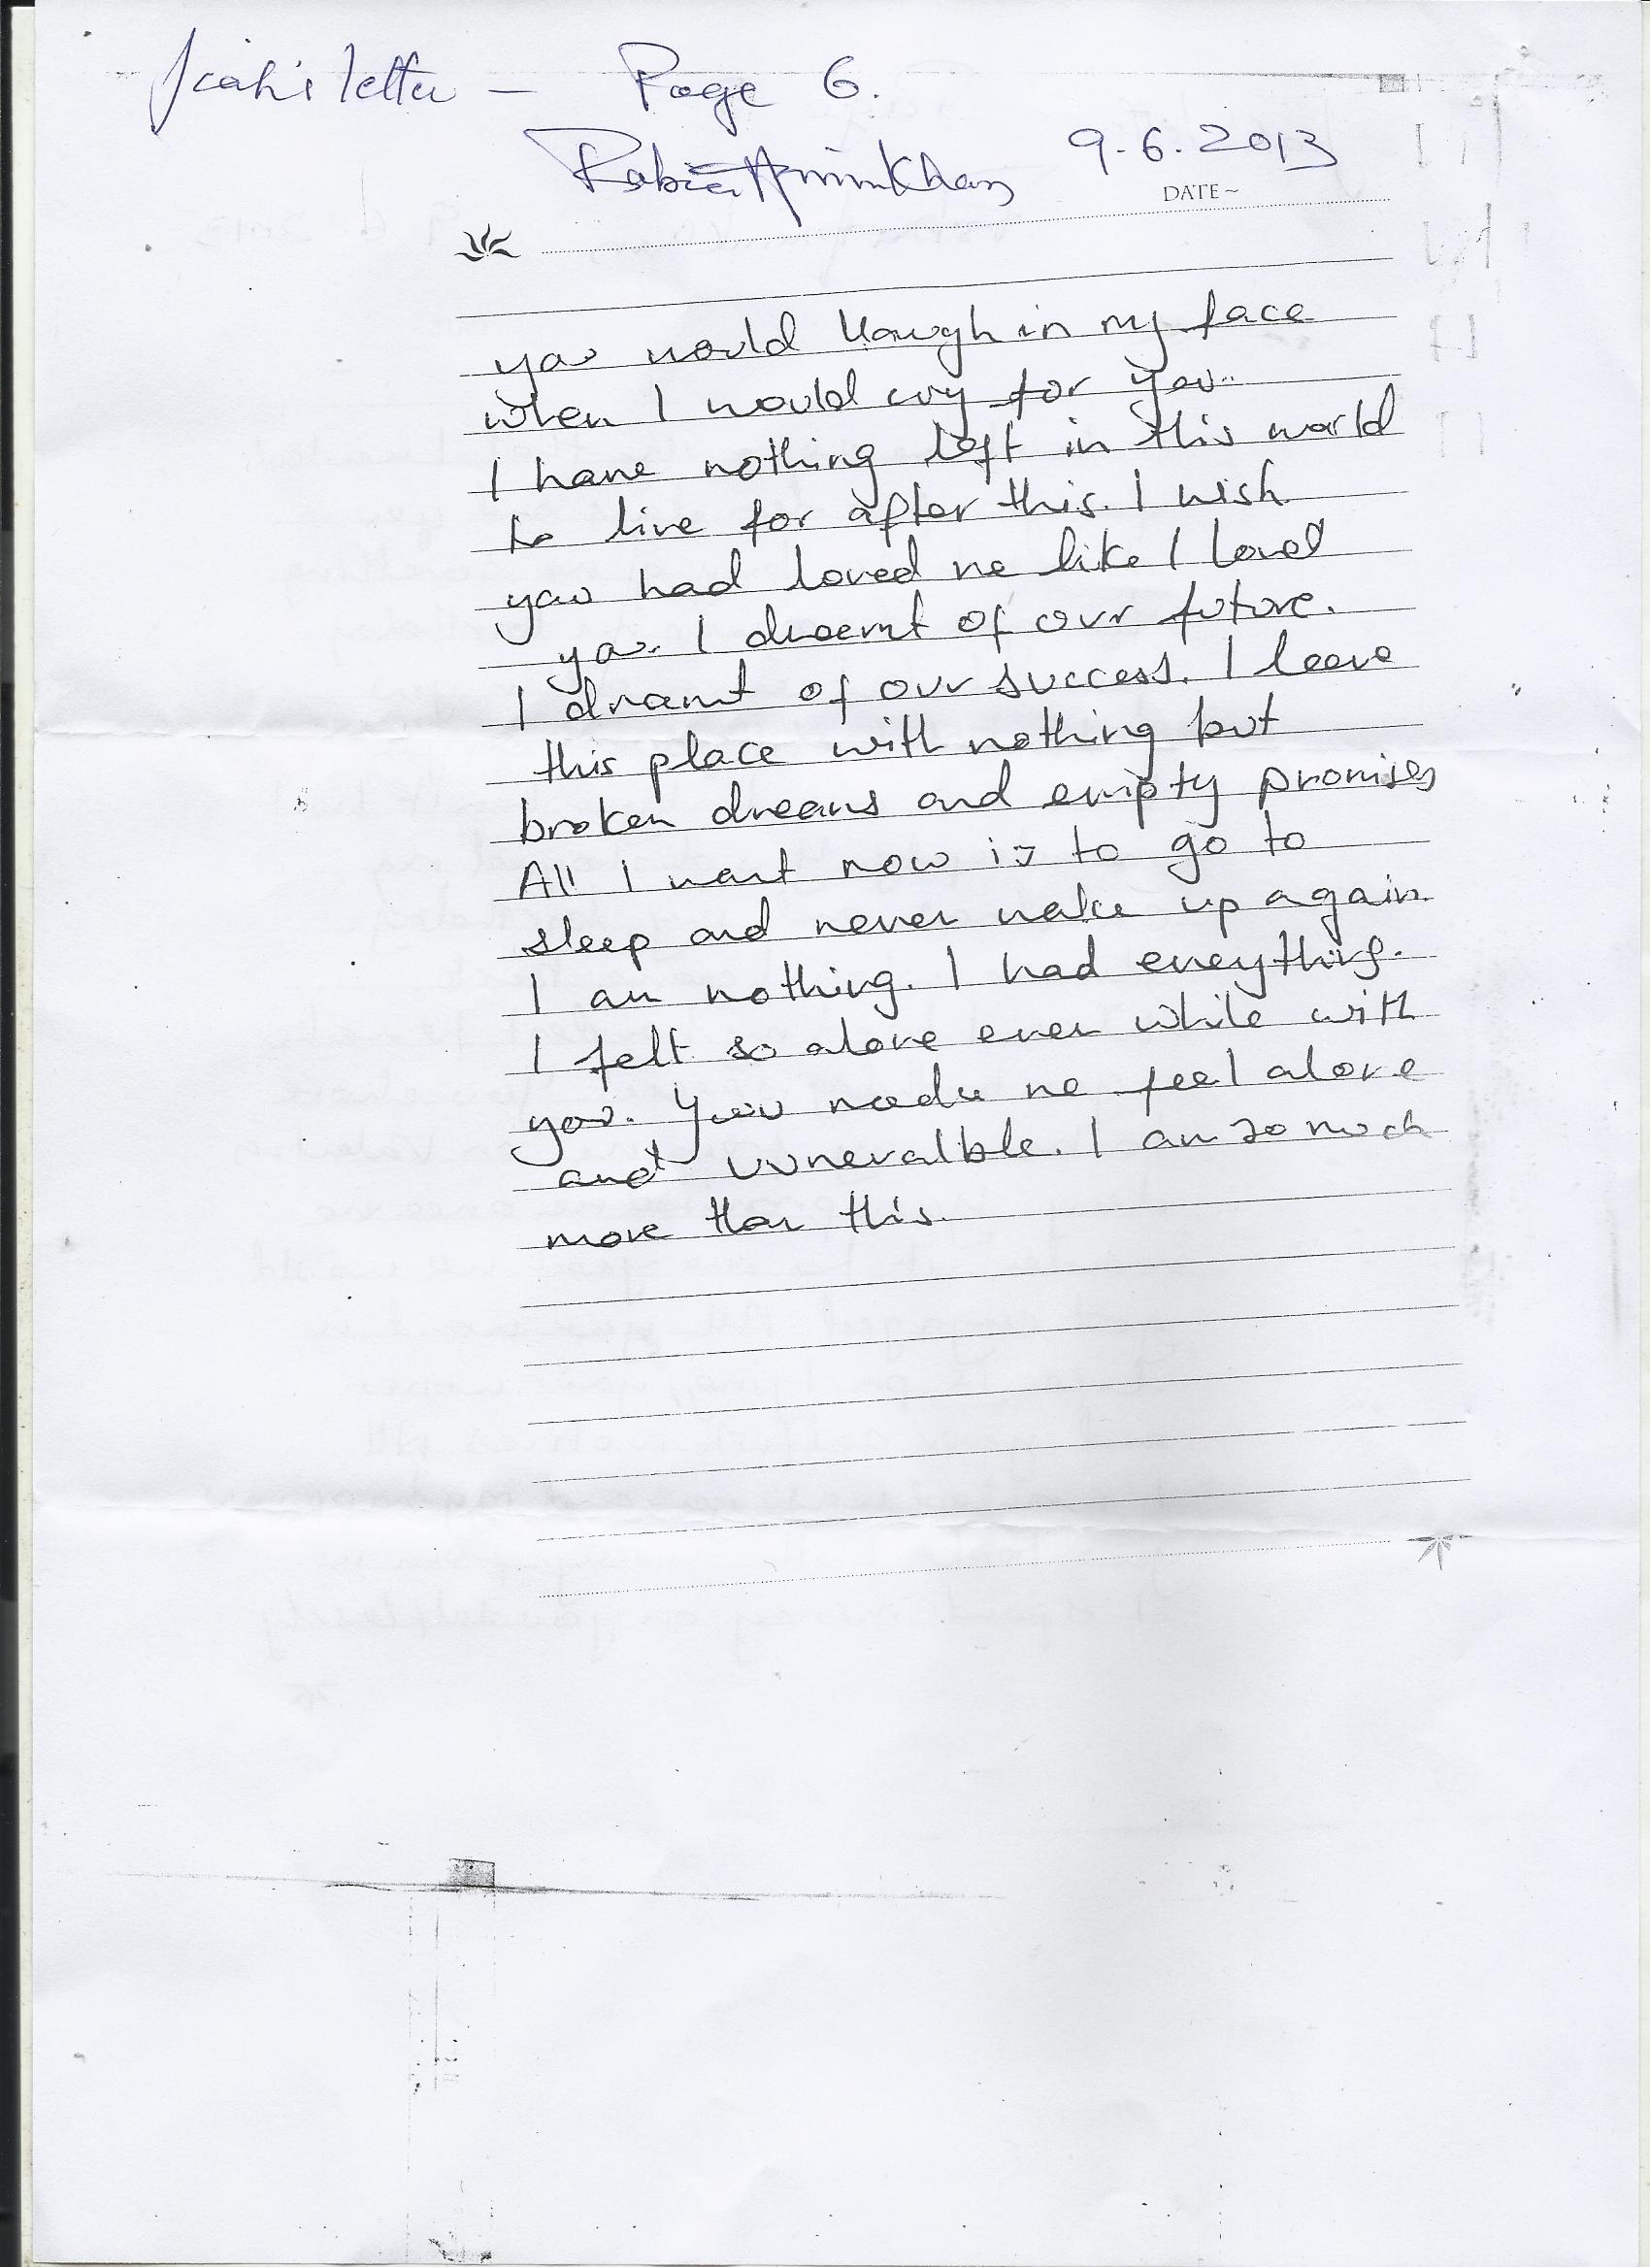 Jiah's letter – Page 6.
Rabia Amin Khan 9.6.2013
DATE~
you would laugh in my face
when I would cry for you..
I have nothing left in this world
to live for after this. I wish
you had loved me like I loved
you. I dreamt of our future.
I dreamt of our success. I leave
this place with nothing but
broken dreams and empty promises
All I want now is to go to
sleep and never wake up again.
I am nothing. I had eveything.
I felt so alone even while with
you. You made me feel alone
and vuneralble. I am so much
more than this.